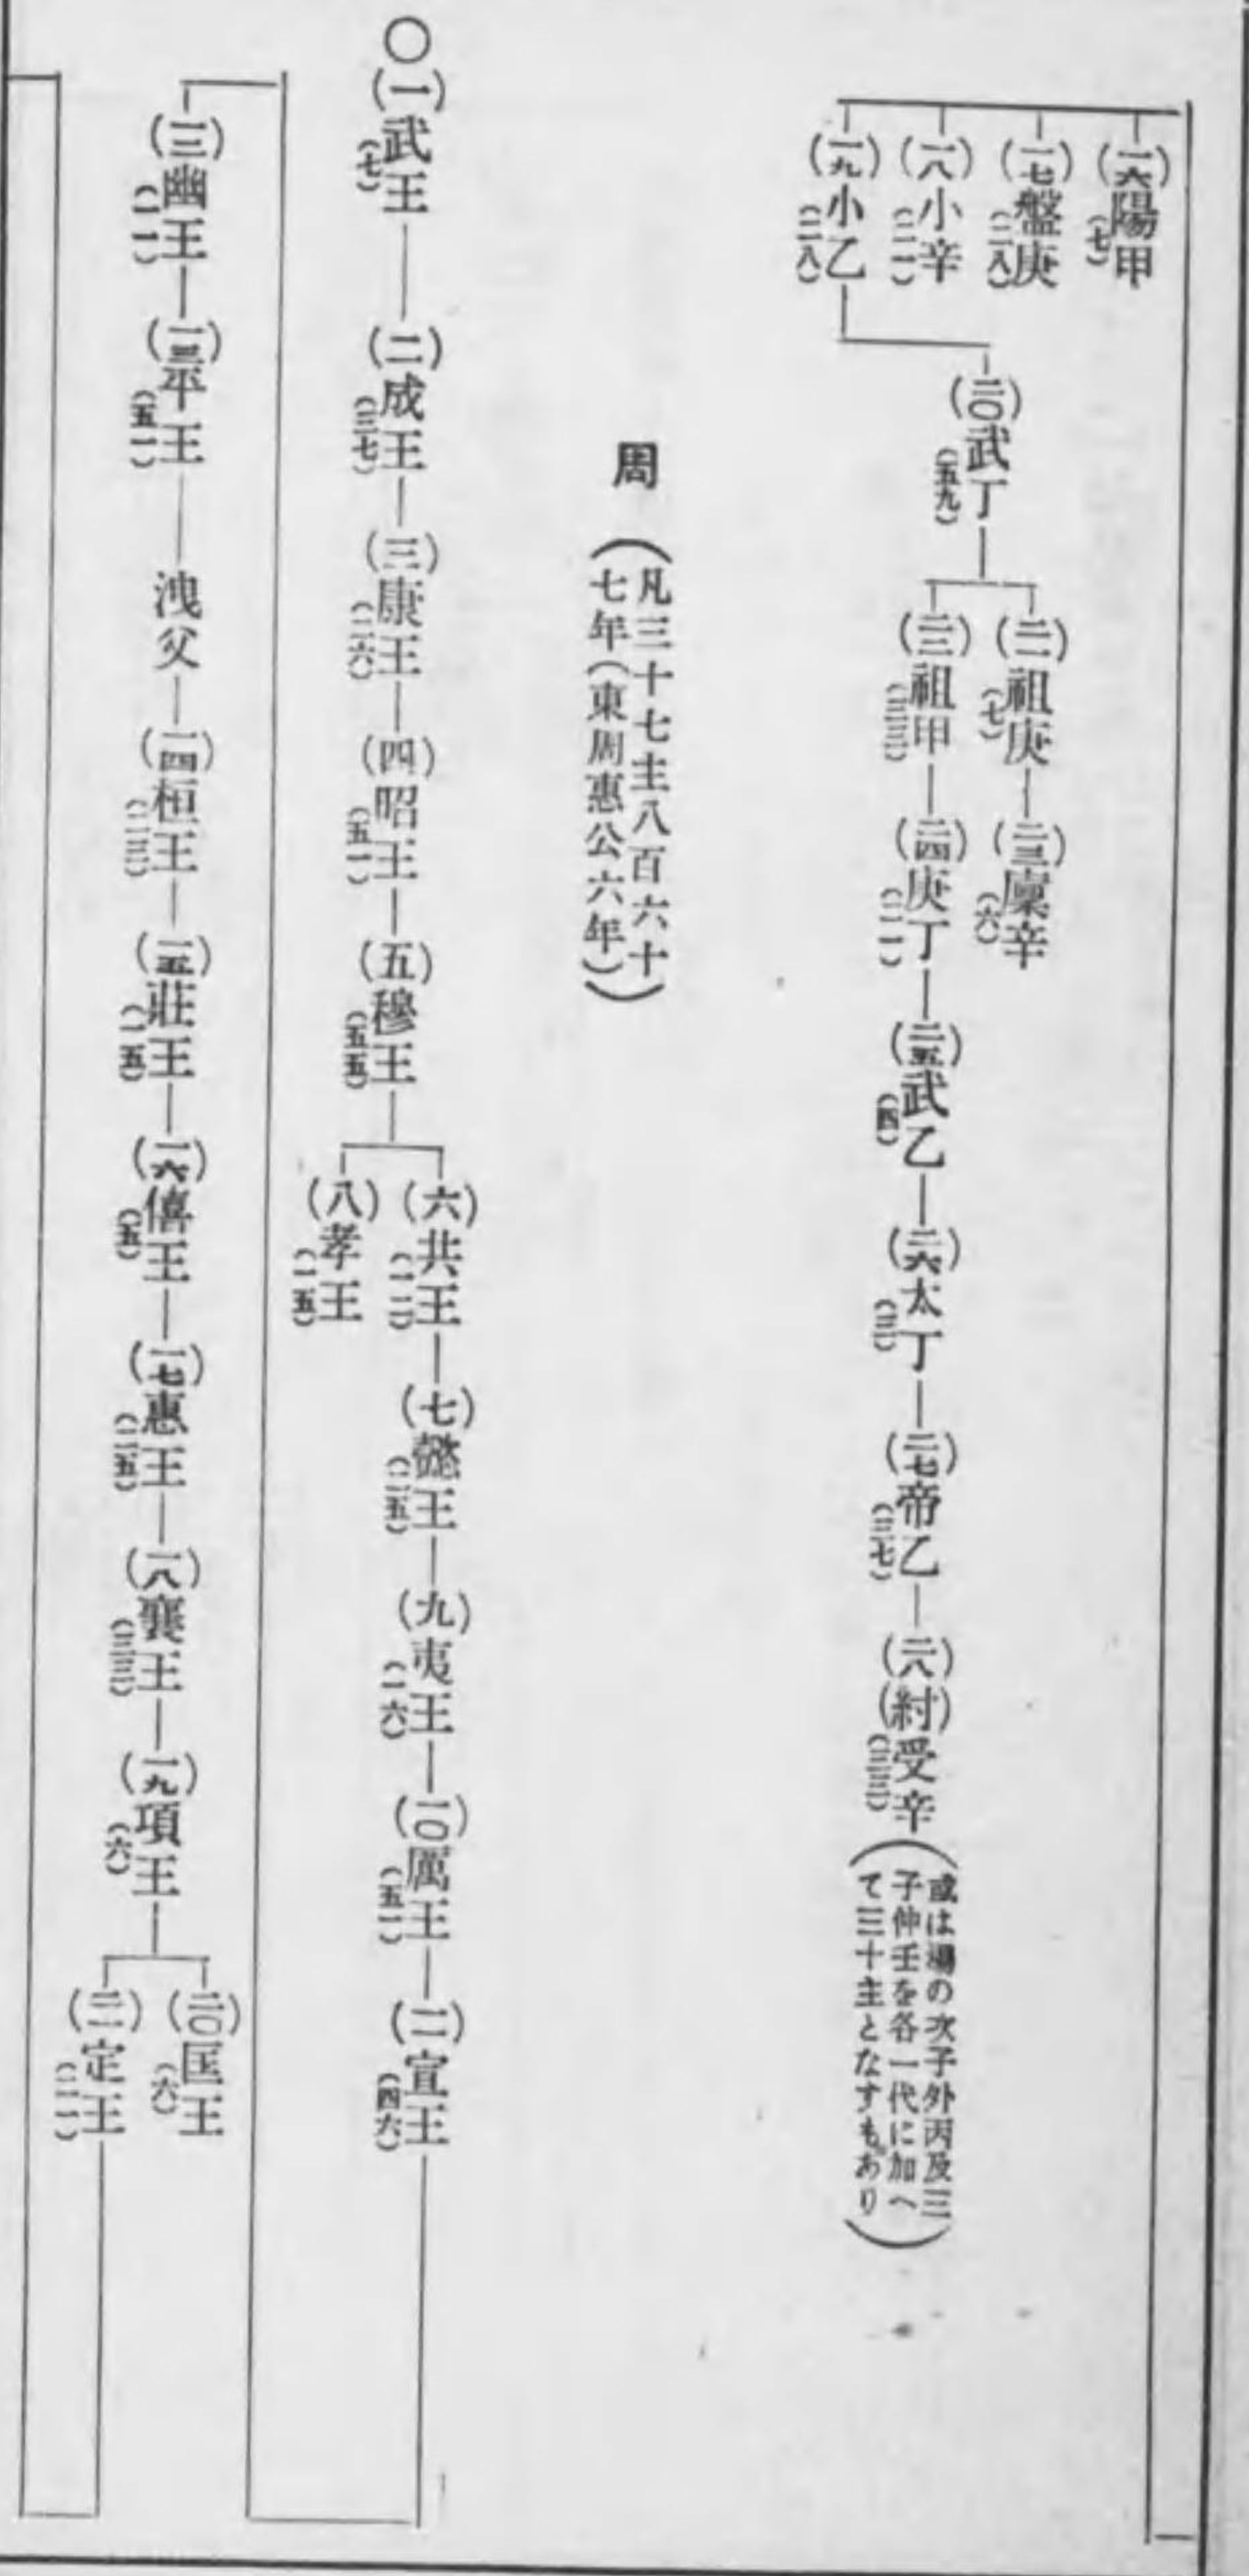 (一六)陽甲(七)
(一七)盤庚(二八)
(一八)小辛(二一)
(一九)小乙(二八)
(二〇)武丁(五九)
(二一)祖庚(七)
(二三)廩辛(六)
(二二)祖甲(三三)
(二四)庚丁(二一)
(二五)武乙(四)
(二六)太丁(三)
(二七)帝乙(三七)
(二八)(紂)受辛(三三)
(或は湯の次子外丙及三
子仲壬を各一代に加へ
て三十主となすもあり)
周
(凡三十七主八百六十
七年(東周惠公六年)
〇(一)武王(七)
(二)成王(三七)
(三)康王(二六)
(四)昭王(五一)
(五)穆王(五五)
(六)共王(一二)
(七)懿王(二五)
(九)夷王(一六)
(一〇)厲王(五一)
(一一)宣王(四六)
(八)孝王(一五)
(一二)幽王(一一)
(一三)平王(五一)
洩父
(一四)桓王(二三)
(一五)莊王(一五)
(一六)僖王(五)
(一七)惠王(二五)
(一八)襄王(三三)
(一九)項王(六)
(二〇)匡王(六)
(二一)定王(二一)